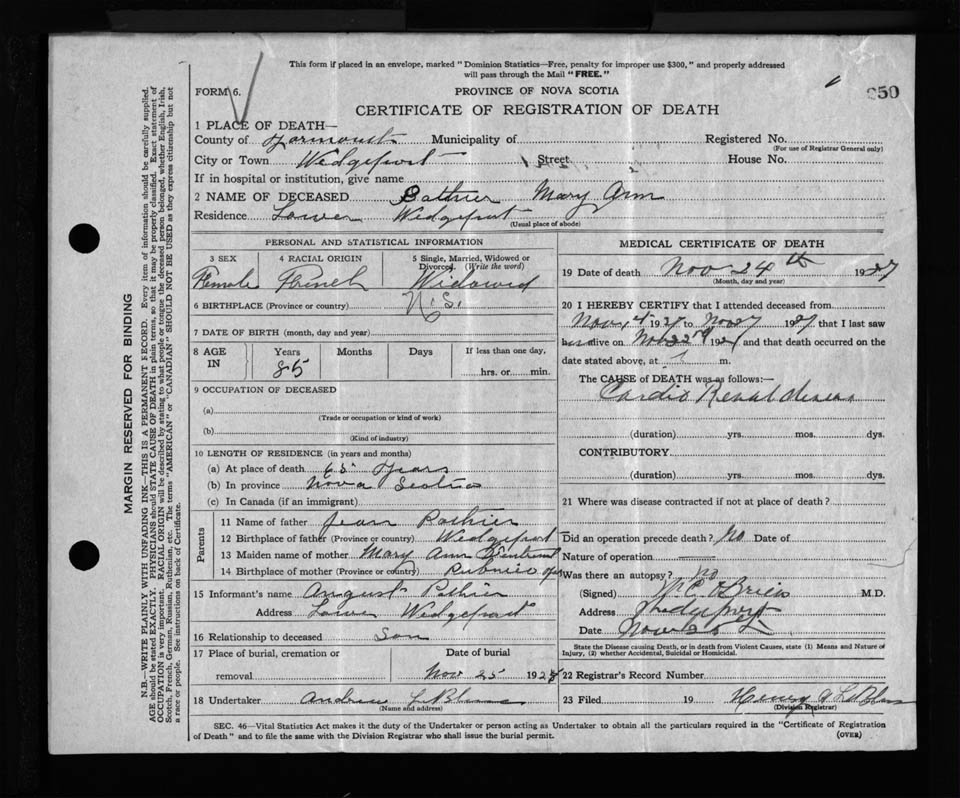 This form if placed in an envelope, marked "Dominion Statistics—Free, penalty for improper use $300," and properly addressed
will pass through the Mail "FREE."
FORM 6.
PROVINCE OF NOVA SCOTIA
350
CERTIFICATE OF REGISTRATION OF DEATH
1 PLACE OF DEATH—
County of Yarmouth Municipality of Registered No.
(For use of Registrar General only)
City or Town Wedgeport Street House No.
If in hospital or institution, give name
2 NAME OF DECEASED Pothier Mary Ann
Residence Lower Wedgeport
(Usual place of abode)
PERSONAL AND STATISTICAL INFORMATION
3 SEX 4 RACIAL ORIGIN 5 Single, Married, Widowed or
Divorced. (Write the word)
Female French Widowed
6 BIRTHPLACE (Province or country) N.S.
7 DATE OF BIRTH (month, day and year)
8 AGE IN Years Months Days If less than one day,
85 hrs. or min.
9 OCCUPATION OF DECEASED
(a)
(Trade or occupation or kind of work)
(b)
(Kind of industry)
10 LENGTH OF RESIDENCE (in years and months)
(a) At place of death 65 Years
(b) In province Nova Scotia
(c) In Canada (if an immigrant)
Parents
11 Name of father Jean Pothier
12 Birthplace of father (Province or country) Wedgeport
13 Maiden name of mother Mary Ann
14 Birthplace of mother (Province or country) Pubnico
15 Informant's name August Pothier
Address Lower Wedgeport
16 Relationship to deceased Son
17 Place of burial, cremation or Date of burial
removal Nov 25 192
18 Undertaker Andrew LeBlanc
(Name and address)
MEDICAL CERTIFICATE OF DEATH
19 Date of death Nov 24th 1927
(Month, day and year)
20 I HEREBY CERTIFY that I attended deceased from
Nov 4 1927 to Nov 1927 that I last saw
alive on Nov 22nd 192 and that death occurred on the
date stated above, at m.
The CAUSE of DEATH was as follows:—
Cardio Renal disease
(duration) yrs. mos. dys.
CONTRIBUTORY
(duration) yrs. mos. dys.
21 Where was disease contracted if not at place of death?
Did an operation precede death? No Date of
Nature of operation
Was there an autopsy? no
(Signed) W.C. O'Brien M.D.
Address Wedgeport
Date Nov 25
State the Disease causing Death, or in death from Violent Causes, state (1) Means and Nature of
Injury, (2) whether Accidental, Suicidal or Homicidal.
22 Registrar's Record Number
23 Filed 19 Henry A LeBlanc
(Division Registrar)
SEC. 46—Vital Statistics Act makes it the duty of the Undertaker or person acting as Undertaker to obtain all the particulars required in the "Certificate of Registration
of Death" and to file the same with the Division Registrar who shall issue the burial permit.
(OVER)
MARGIN RESERVED FOR BINDING
N.B.—WRITE PLAINLY WITH UNFADING INK—THIS IS A PERMANENT RECORD. Every item of information should be carefully supplied.
AGE should be stated EXACTLY. PHYSICIANS should STATE CAUSE OF DEATH in plain terms, so that it may be properly classified. Exact statement of
OCCUPATION is very important. RACIAL ORIGIN will be described by stating to what people or tongue the deceased person belonged, whether English, Irish,
Scotch, French, German, Russian, Ruthenian, etc. The terms "AMERICAN" or "CANADIAN" SHOULD NOT BE USED as they express citizenship but not
a race or people. See instructions on back of Certificate.